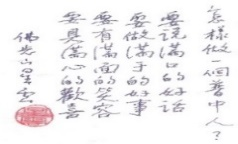 怎樣做一個善中人？
要說滿口的好話
要做滿手的好事
要有滿面的笑容
要見滿心的歡喜
佛光山星雲